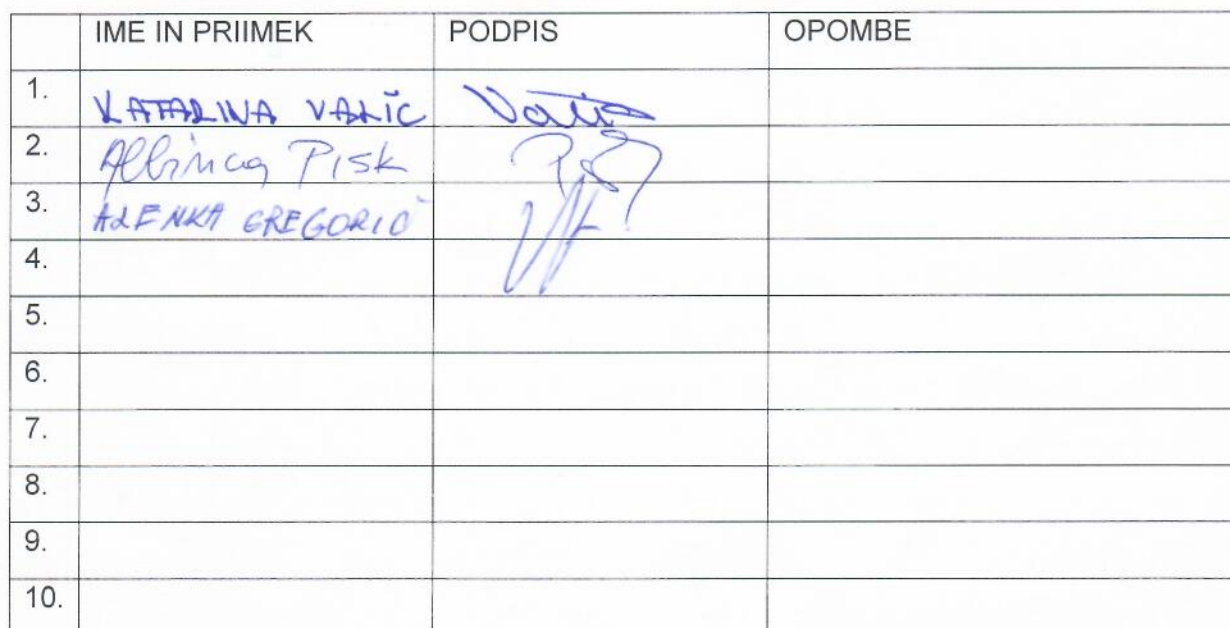 IME IN PRIIMEK PODPIS OPOMBE
1. KATARINA VALIČ Valič
2. Albinca Pisk
3. ALENKA GREGORIČ
4.
5.
6.
7.
8.
9.
10.